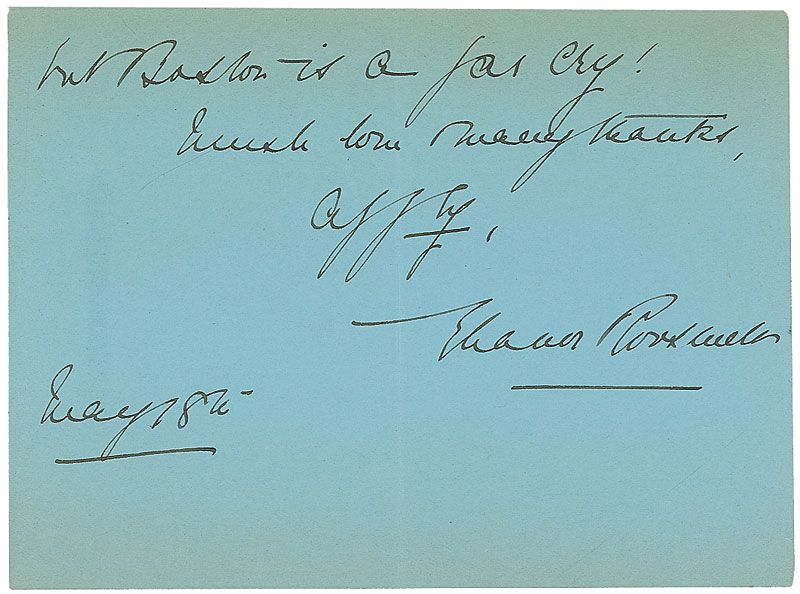 but Boston is a far cry!
Much love many thanks,
affly,
Eleanor Roosevelt
May 18th